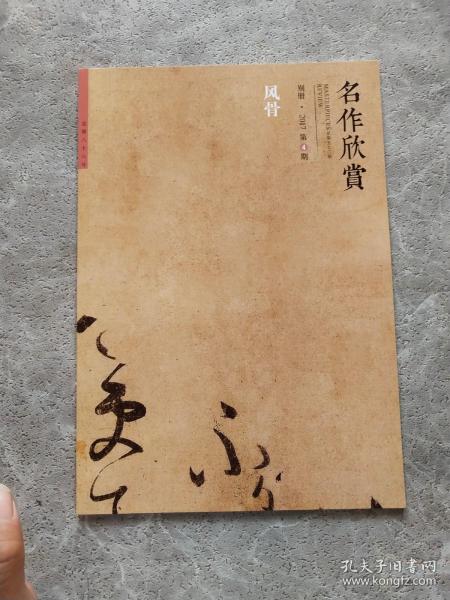 名作欣賞
MASTERPIECES REVIEW
别册·2017 第4期
风骨
孔夫子旧书网
www.kongfz.com